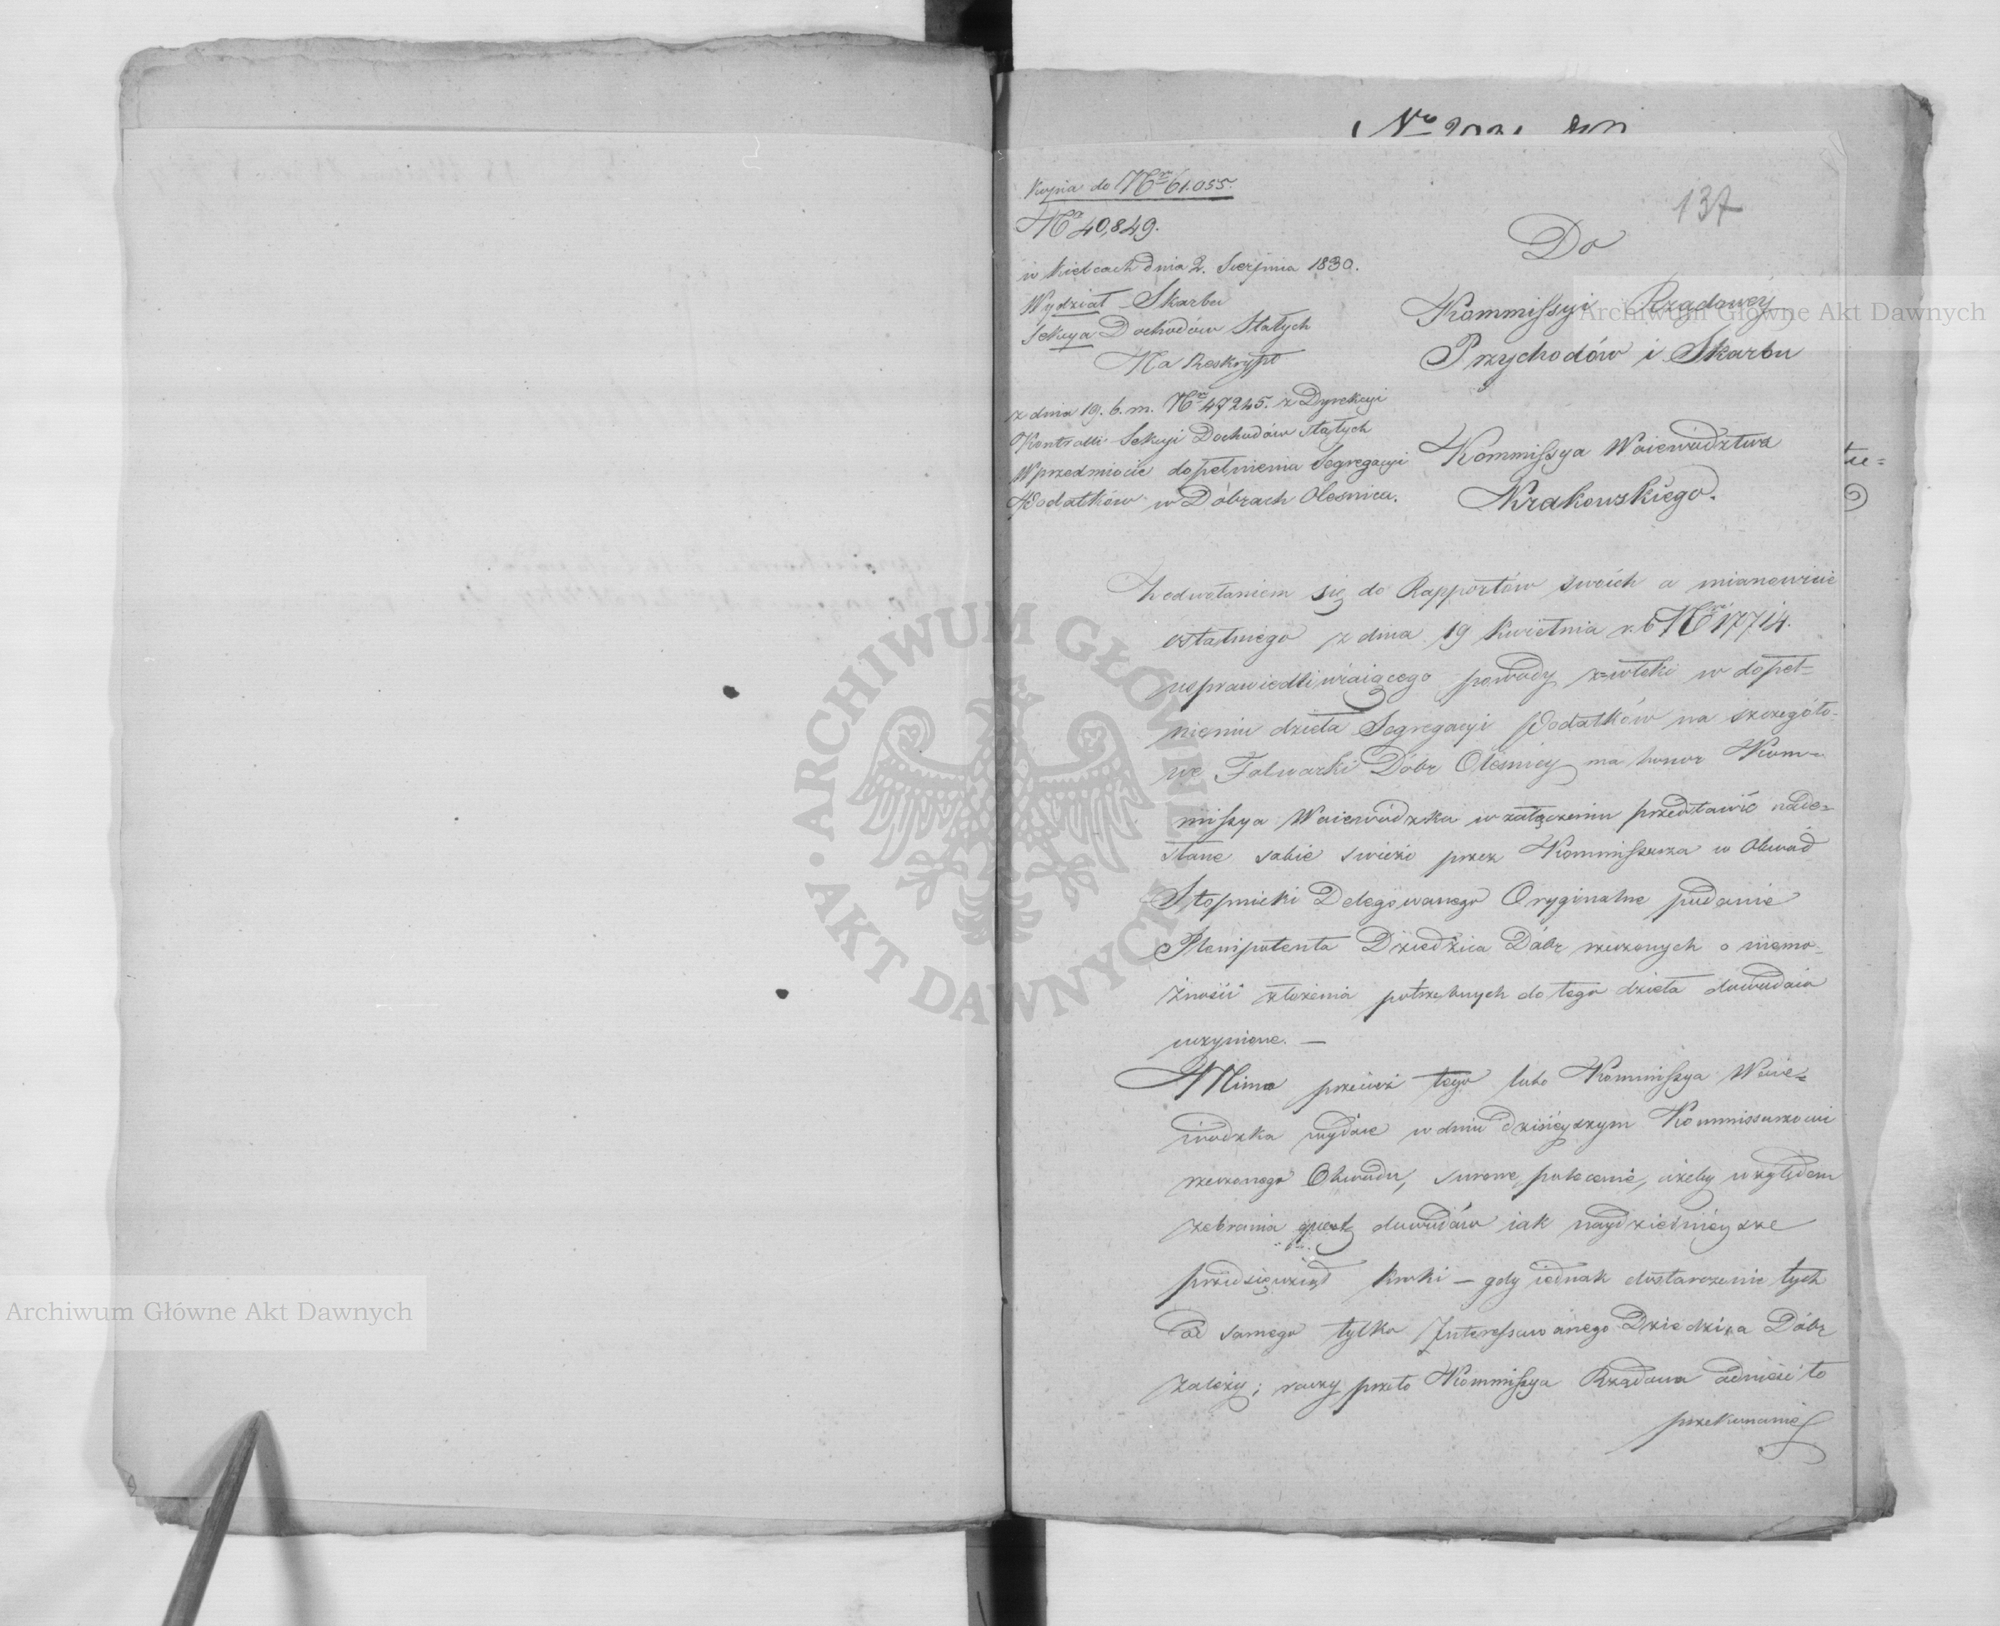 137
Kopia do Nru 61.055.
Nro 40,849.
w Kielcach dnia 2. Sierpnia 1830.
Wydział Skarbu
Sekcya Dochodów Stałych
Na Reskrypt
z dnia 19. b. m. Nro 47245. z Dyrekcyi
Kontrolli Sekcyi Dochodów stałych
W przedmiocie dopełnienia Segregacyi
Podatków w Dobrach Olesnica.
Do
Kommissyi Rządowéy
Przychodów i Skarbu
Kommissya Woiewództwa
Krakowskiego.
Z odwołaniem się do Rapportów swoich a mianowicie
ostatniego z dnia 19 Kwietnia r. b. Nro 17714.
usprawiedliwiaiącego powody zwłoki w dopeł-
nieniu dzieła Segregacyi Podatków na szczegóło-
we Folwarki Dóbr Olesnicy ma honor Kom-
missya Woiewódzka w załączeniu przedstawić nade-
słane sobie swieżo przez Kommissarza w Obwód
Stopnicki Delegowanego Oryginalne podanie
Plenipotenta Dziedzica Dóbr rzeczonych o niemo-
żności złożenia potrzebnych do tego dzieła dowodów
uczynione. —
Mimo przecież tego lubo Kommissya Woie-
wódzka wydaie w dniu dzisiéyszym Kommissarzowi
rzeczonego Obwodu, surowe polecenie, ażeby względem
zebrania dowodów iak naydzielnieysze
przedsięwziął kroki — gdy iednak dostarczenie tych
od samego tylko Interessowanego Dziedzica Dóbr
zależy; raczy przeto Kommissya Rządowa odnieść to
przekonanie
Archiwum Główne Akt Dawnych
Archiwum Główne Akt Dawnych
ARCHIWUM GŁÓWNE
AKT DAWNYCH